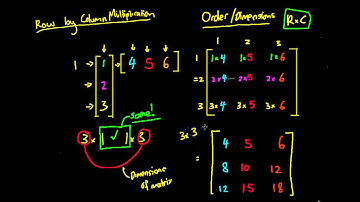 Row by Column Multiplication
1 → [1 2 3] → [4 5 6]
same!
3 × 1 ✓ 1 × 3
Dimensions
of matrix
Order/Dimensions
R × C
1 2 3
1 1×4 1×5 1×6
=2 2×4 2×5 2×6
3 3×4 3×5 3×6
3 × 3
= 4 5 6
8 10 12
12 15 18